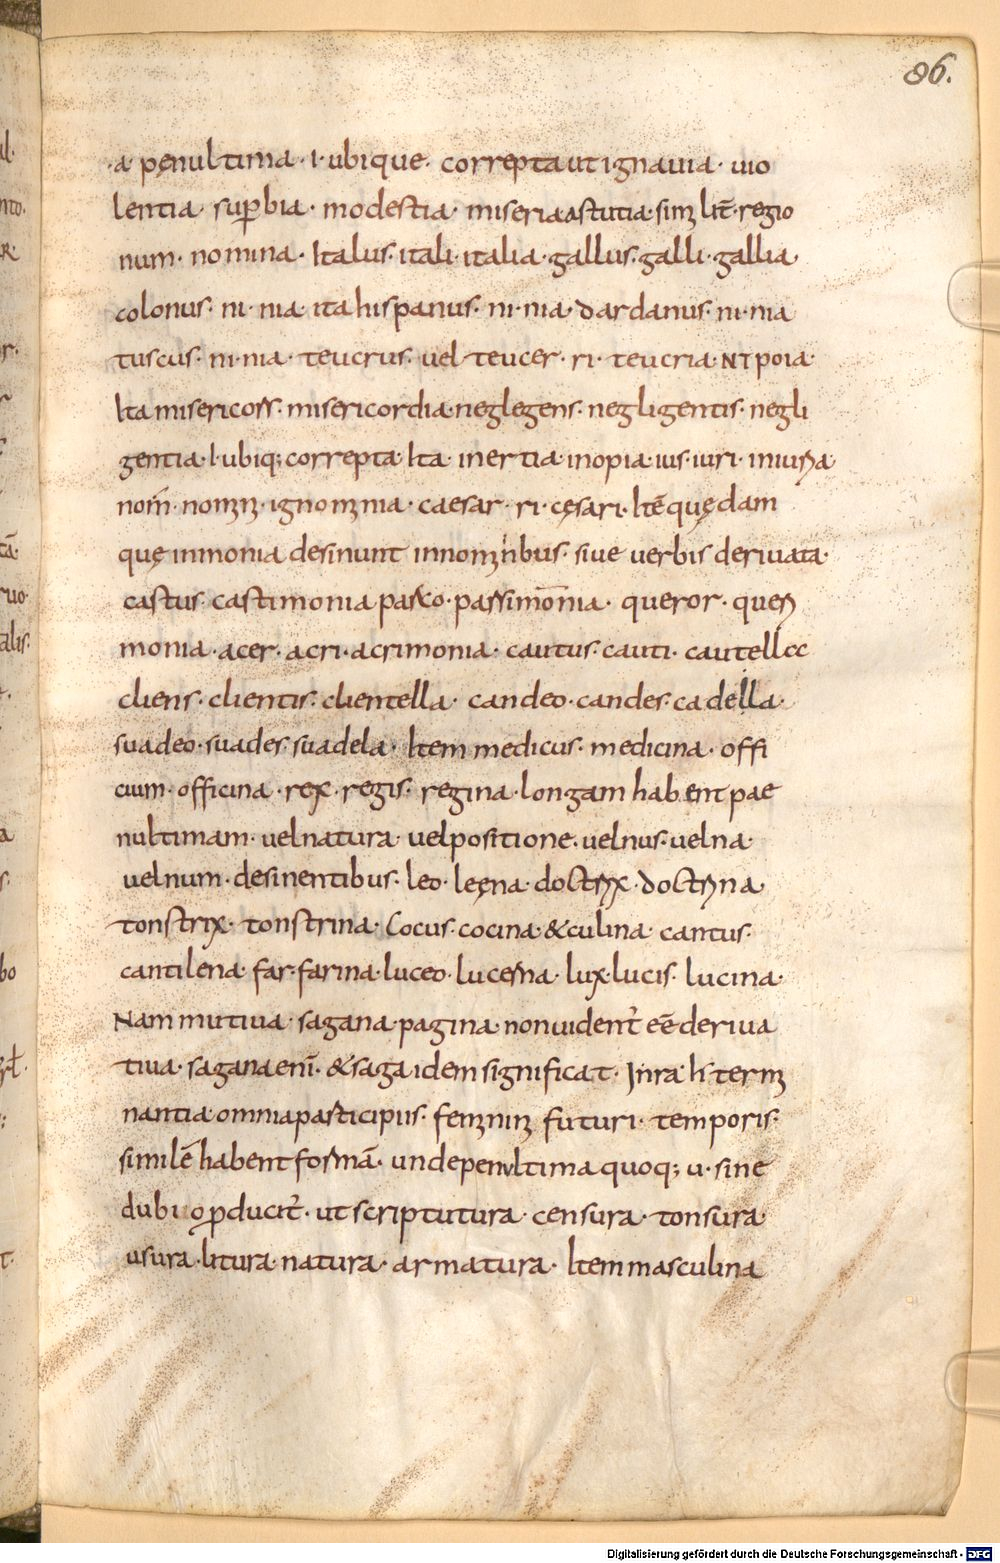 86.
·a· pęnultima · i · ubique · correpta ut ignauia · uio
lentia · suꝑbia · modestia · miseria astutia · simlit̄ · regio
num · nomina · Italus · itali · italia · gallus · galli · gallia
colonus · ni · nia ita hispanus · ni · nia · dardanus · ni · nia
tuscus · ni · nia · teucrus · uel teucer · ri · teucria NT poia
Ita misericors · misericordia · neglegens · negligentis · negli
gentia · I · ubiq; correpta Ita inertia · inopia · ius · iuri · iniuria
nom̄ · nomini · ignominia · caesar · ri · cęsari · Itē quędam
quę inmonia desinunt in nominibus · siue uerbis deriuata ·
castus castimonia parco · parsimōnia · queror · queri
monia · acer · acri · acrimonia · cautus · cauti · cautella
cliens · clientis · clientella · candeo · candes · cadella ·
suadeo · suades · suadela · Item medicus · medicina · offi
cium · officina · rex · regis · regina · longam habent pae
nultimam · uel natura · uel positione · uel nus · uel na
uel num · desinentibus · leo · leęna · doctrix · doctrina
tonstrix · tonstrina · Cocus · cocina · & culina · cantus ·
cantilena · far · farina · luceo · lucerna · lux · lucis · lucina ·
Nam mutiua · sagana · pagina · non uident̄ eē deriua
tiua · sagana eni̅ · & saga idem significat · In ra li termi
nantia omnia participiis · feminini futuri · temporis ·
similē habent formā · unde penultima quoq; u · sine
dubio ꝓducit̄ · ut scriptutura · censura · tonsura
usura · litura natura · armatura · Item masculina
Digitalisierung gefördert durch die Deutsche Forschungsgemeinschaft - DFG